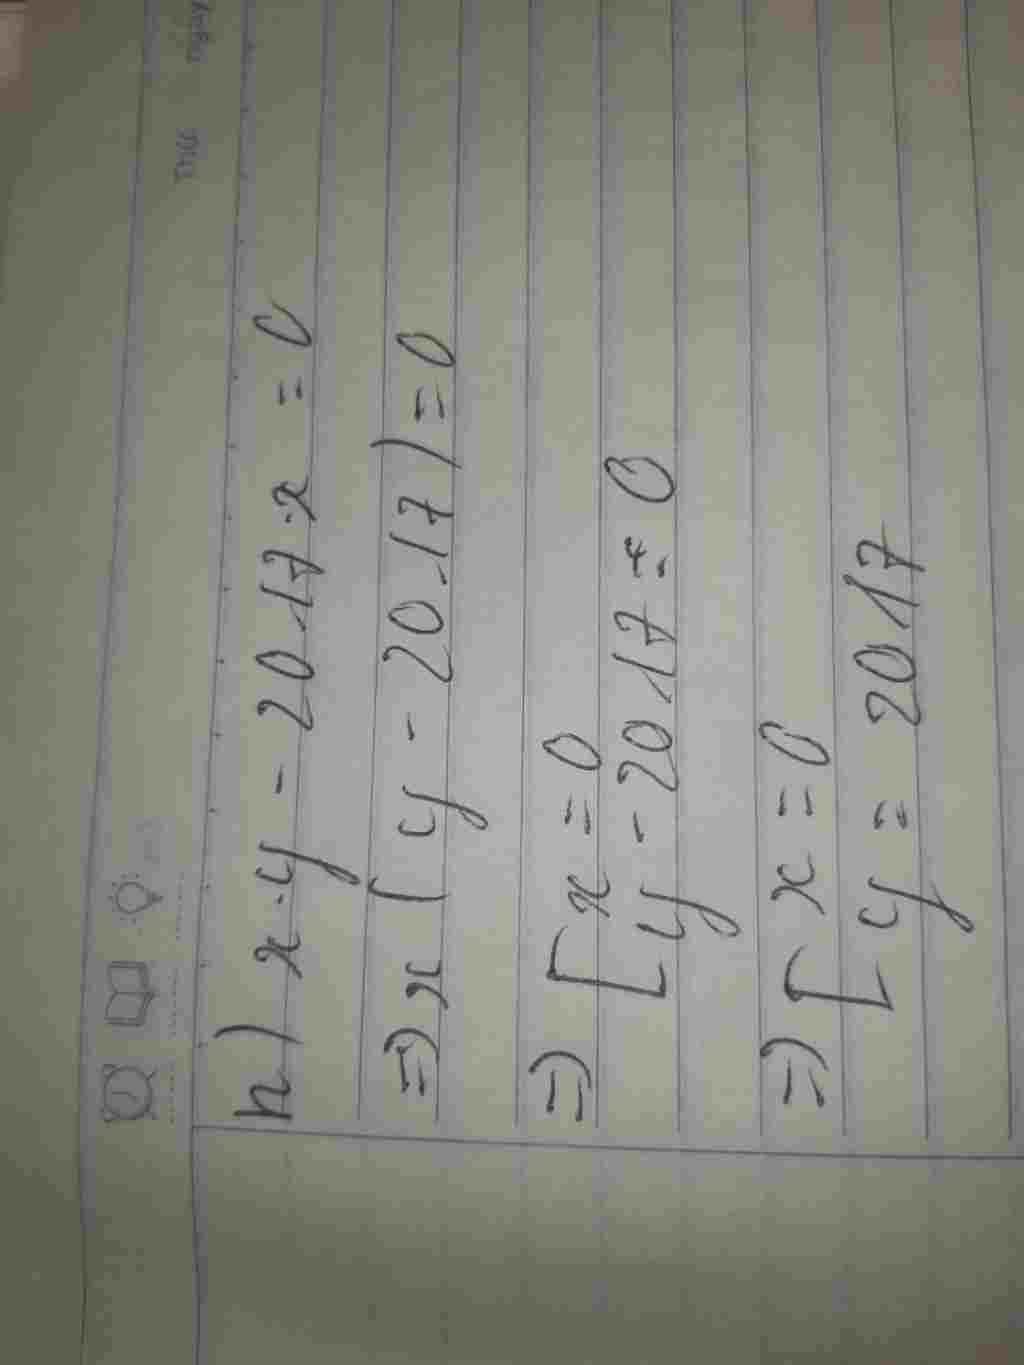 Thứ
Ngày
h) x.y - 2017.x = 0
=> x(y - 2017) = 0
=> [x = 0
[y - 2017 = 0
=> [x = 0
[y = 2017